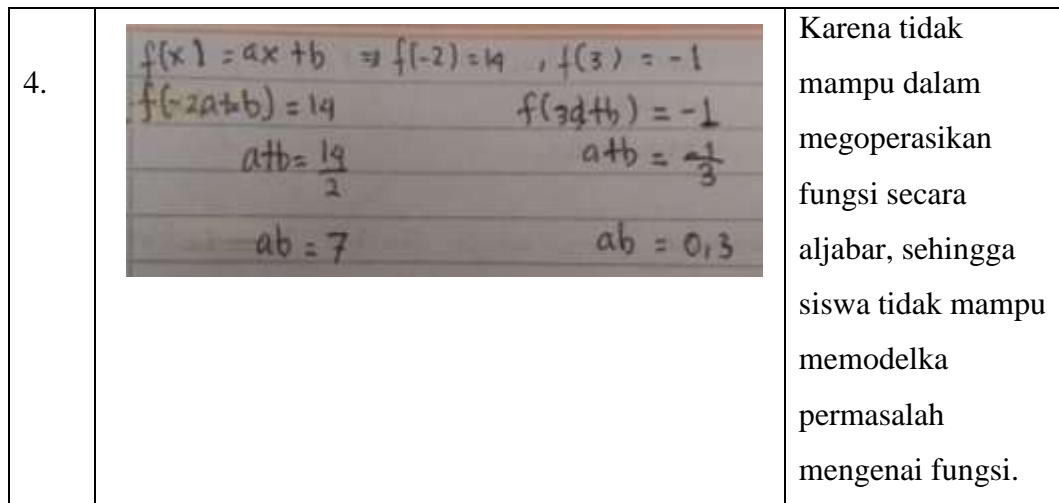 4.
f(x) = ax + b ⇒ f(-2) = 14 , f(3) = -1
f(-2a+b) = 14 f(3a+b) = -1
a+b = 14/2 a+b = -1/3
ab = 7 ab = 0,3
Karena tidak
mampu dalam
megoperasikan
fungsi secara
aljabar, sehingga
siswa tidak mampu
memodelka
permasalah
mengenai fungsi.